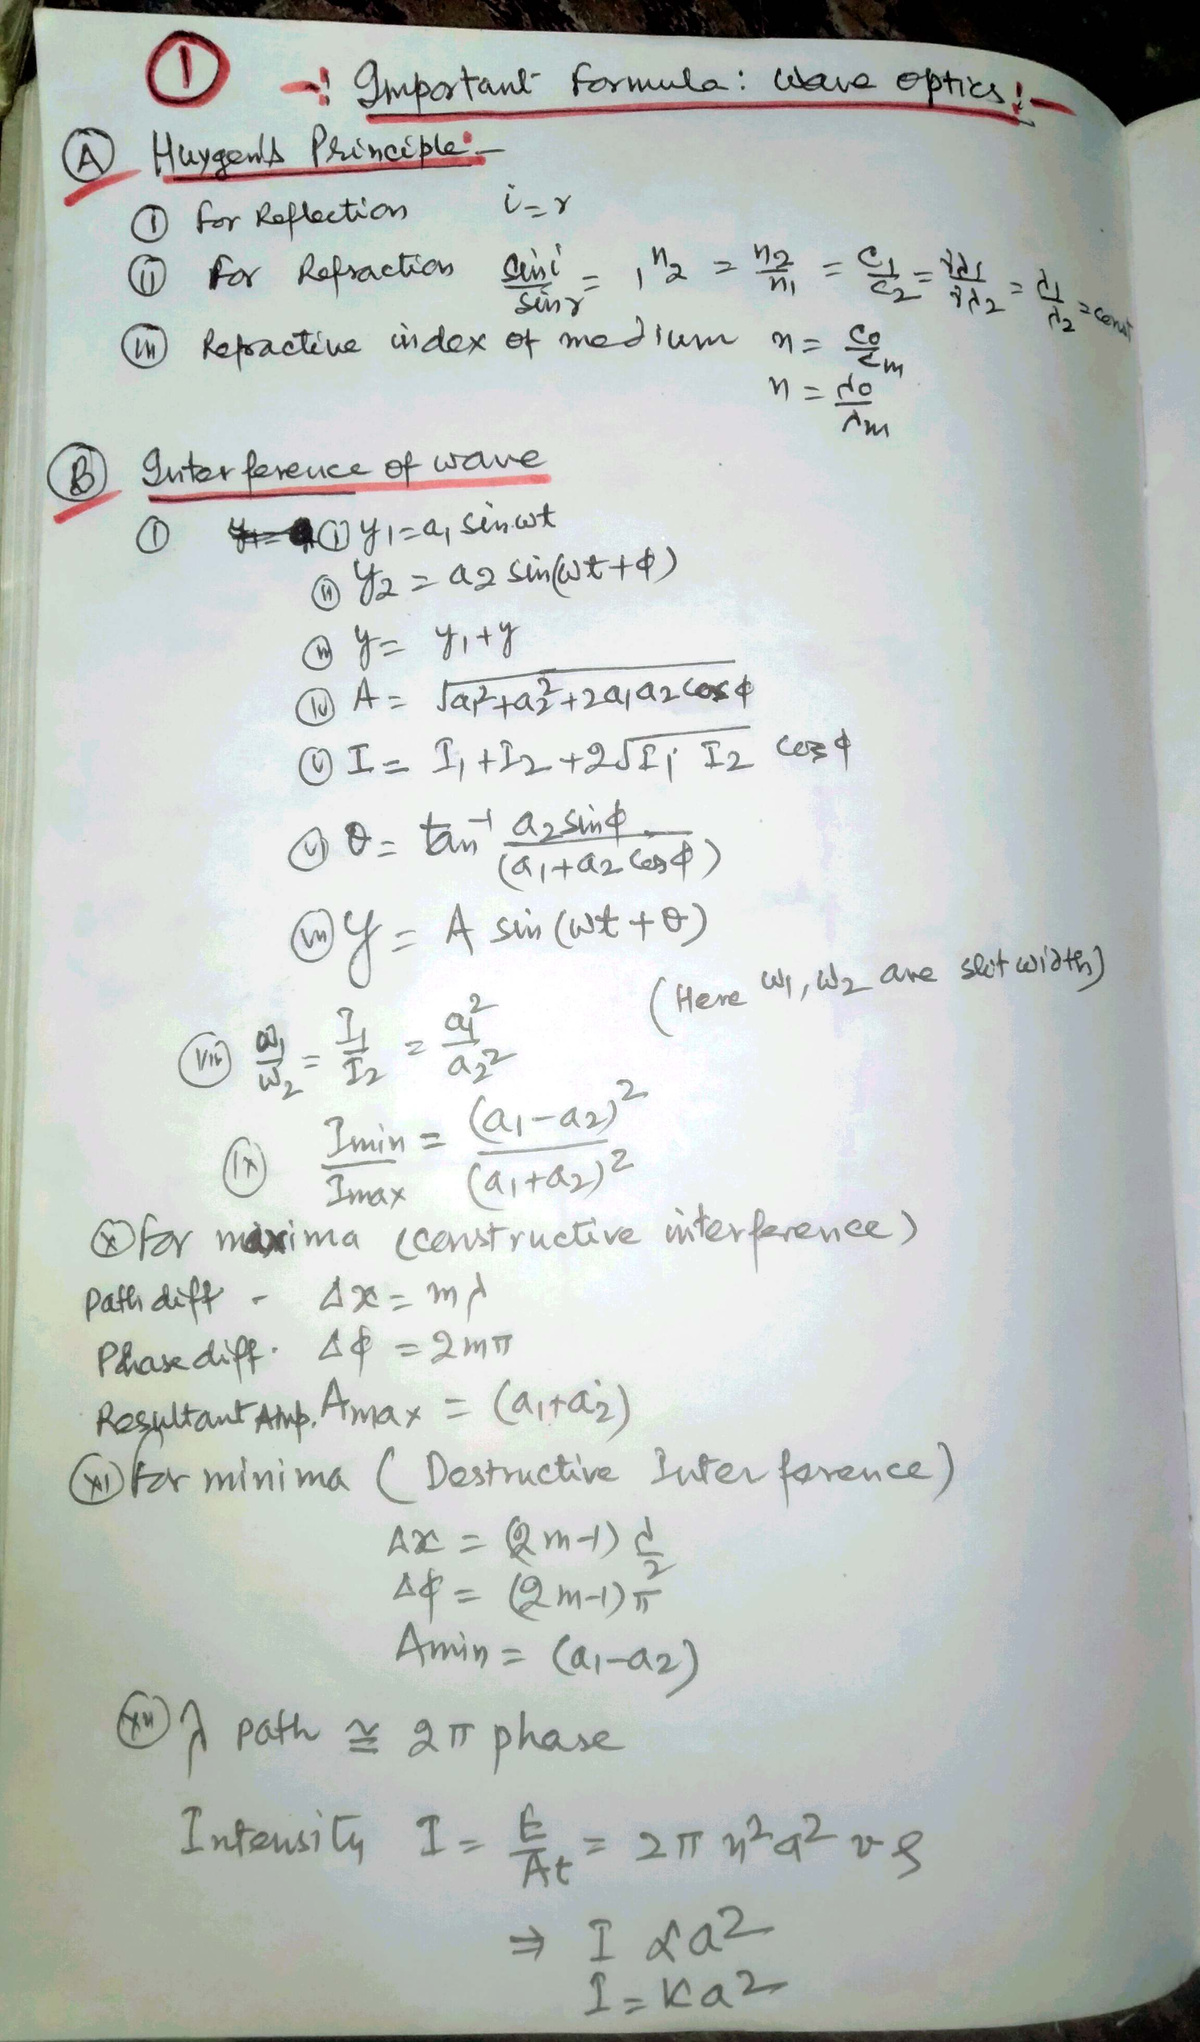 ① -: Important Formula: Wave optics :-
Ⓐ Huygen's Principle:-
ⓘ For Reflection i = r
ⓘⓘ For Refraction sin i / sin r = ₁n₂ = n₂/n₁ = c₁/c₂ = νλ₁/νλ₂ = λ₁/λ₂ = const
ⓘⓘⓘ Refractive index of medium n = c₀/cm
n = λ₀/λm
Ⓑ Interference of wave
ⓘ (i) y₁ = a₁ sin ωt
(ii) y₂ = a₂ sin(ωt + ϕ)
(iii) y = y₁ + y
(iv) A = √(a₁² + a₂² + 2a₁a₂ cos ϕ)
(v) I = I₁ + I₂ + 2√(I₁ I₂) cos ϕ
(vi) θ = tan⁻¹ a₂ sin ϕ / (a₁ + a₂ cos ϕ)
(vii) y = A sin (ωt + θ)
(Here ω₁, ω₂ are slit width)
(viii) ω₁/ω₂ = I₁/I₂ = a₁²/a₂²
(ix) Imin/Imax = (a₁ - a₂)² / (a₁ + a₂)²
(x) For maxima (constructive interference)
Path diff - Δx = mλ
Phase diff. Δϕ = 2mπ
Resultant Amp. Amax = (a₁ + a₂)
(xi) For minima ( Destructive Interference)
Δx = (2m-1) λ/2
Δϕ = (2m-1) π
Amin = (a₁ - a₂)
(xii) λ path ≅ 2π phase
Intensity I = E/At = 2π n² a² v ρ
⇒ I ∝ a²
I = Ka²